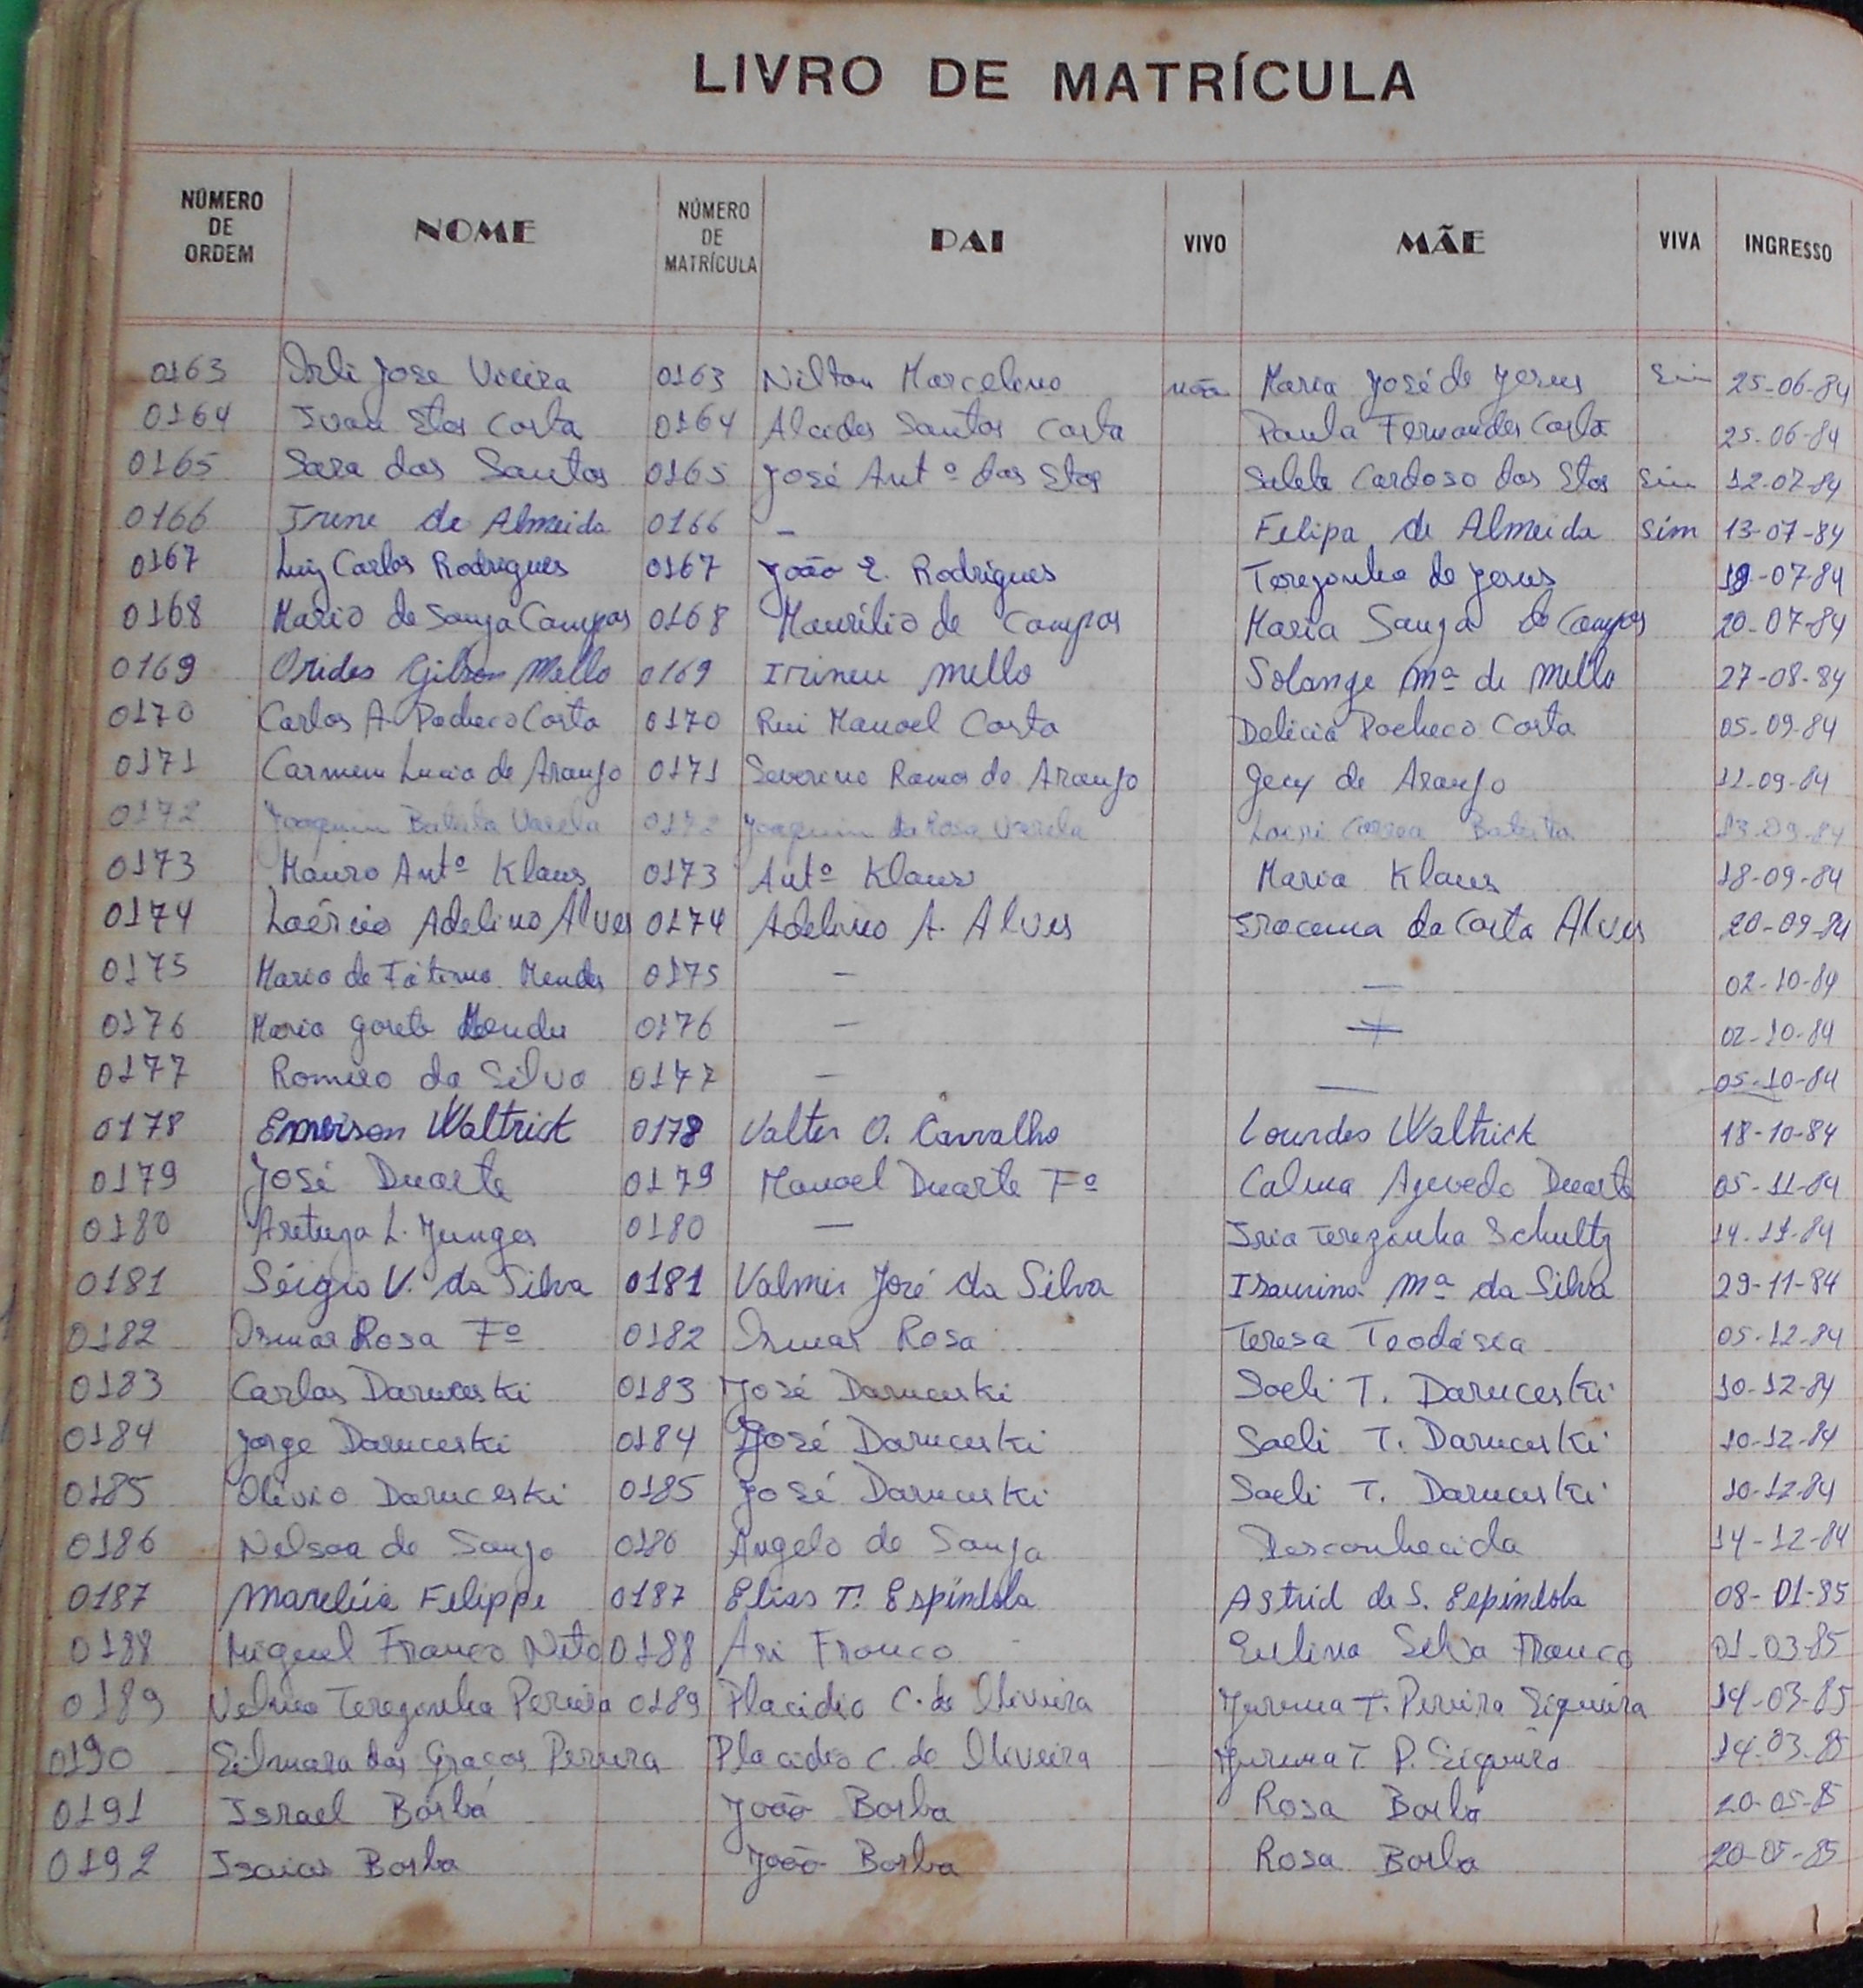 LIVRO DE MATRÍCULA
NÚMERO DE ORDEM NOME NÚMERO DE MATRÍCULA PAI VIVO MÃE VIVA INGRESSO
0163 Orli Jose Vieira 0163 Nilton Marcelino não Maria José de Jesus Sim 25-06-84
0164 Ivan Stos Costa 0164 Alcides Santos Costa Paula Fernandes Costa 25-06-84
0165 Sara dos Santos 0165 José Antº dos Stos Salete Cardoso dos Stos Sim 12-07-84
0166 Irene de Almeida 0166 - Felipa de Almeida sim 13-07-84
0167 Luiz Carlos Rodrigues 0167 João E. Rodrigues Terezinha de Jesus 19-07-84
0168 Mario de Souza Campos 0168 Maurílio de Campos Maria Souza de Campos 20-07-84
0169 Orides Gilson Mello 0169 Irineu Mello Solange Mª de Mello 27-08-84
0170 Carlos A. Pacheco Costa 0170 Rui Manoel Costa Delicia Pacheco Costa 05-09-84
0171 Carmem Lucia de Araujo 0171 Severino Ramos de Araujo Gecy de Araujo 11-09-84
0172 Joaquim Batista Varela 0172 Joaquim da Rosa Varela Correa Batista 13-09-84
0173 Mauro Antº Klaus 0173 Antº Klaus Maria Klaus 18-09-84
0174 Laércio Adelino Alves 0174 Adelino A. Alves Iracema da Costa Alves 20-09-84
0175 Maria de Fátima Mendes 0175 - - 02-10-84
0176 Maria Gorete Mendes 0176 - - 02-10-84
0177 Romeo da Silva 0177 - - 05-10-84
0178 Emerson Waltrick 0178 Valter O. Carvalho Lourdes Waltrick 18-10-84
0179 José Duarte 0179 Manoel Duarte Fº Calma Azevedo Duarte 05-11-84
0180 Aretuza L. Junges 0180 - Iria Terezinha Schultz 14-11-84
0181 Sérgio V. da Silva 0181 Valmir José da Silva Isaurina Mª da Silva 29-11-84
0182 Osmar Rosa Fº 0182 Osmar Rosa Teresa Teodósia 05-12-84
0183 Carlos Daruceski 0183 José Daruceski Saeli T. Daruceski 10-12-84
0184 Jorge Daruceski 0184 José Daruceski Saeli T. Daruceski 10-12-84
0185 Olivio Daruceski 0185 José Daruceski Saeli T. Daruceski 10-12-84
0186 Nelson de Souza 0186 Angelo de Souza Desconhecida 14-12-84
0187 Marelúia Filippe 0187 Elias T. Espíndola Astrid de S. Espíndola 08-01-85
0188 Miguel Franco Neto 0188 Ari Franco Eulina Silva Franco 01-03-85
0189 Velma Terezinha Pereira 0189 Placidio C. de Oliveira Jurema T. Pereira Siqueira 14-03-85
0190 Silmara das Graças Pereira Placidio C. de Oliveira Jurema T. P. Siqueira 14-03-85
0191 Israel Borba João Borba Rosa Borba 20-05-85
0192 Isaias Borba João Borba Rosa Borba 20-05-85